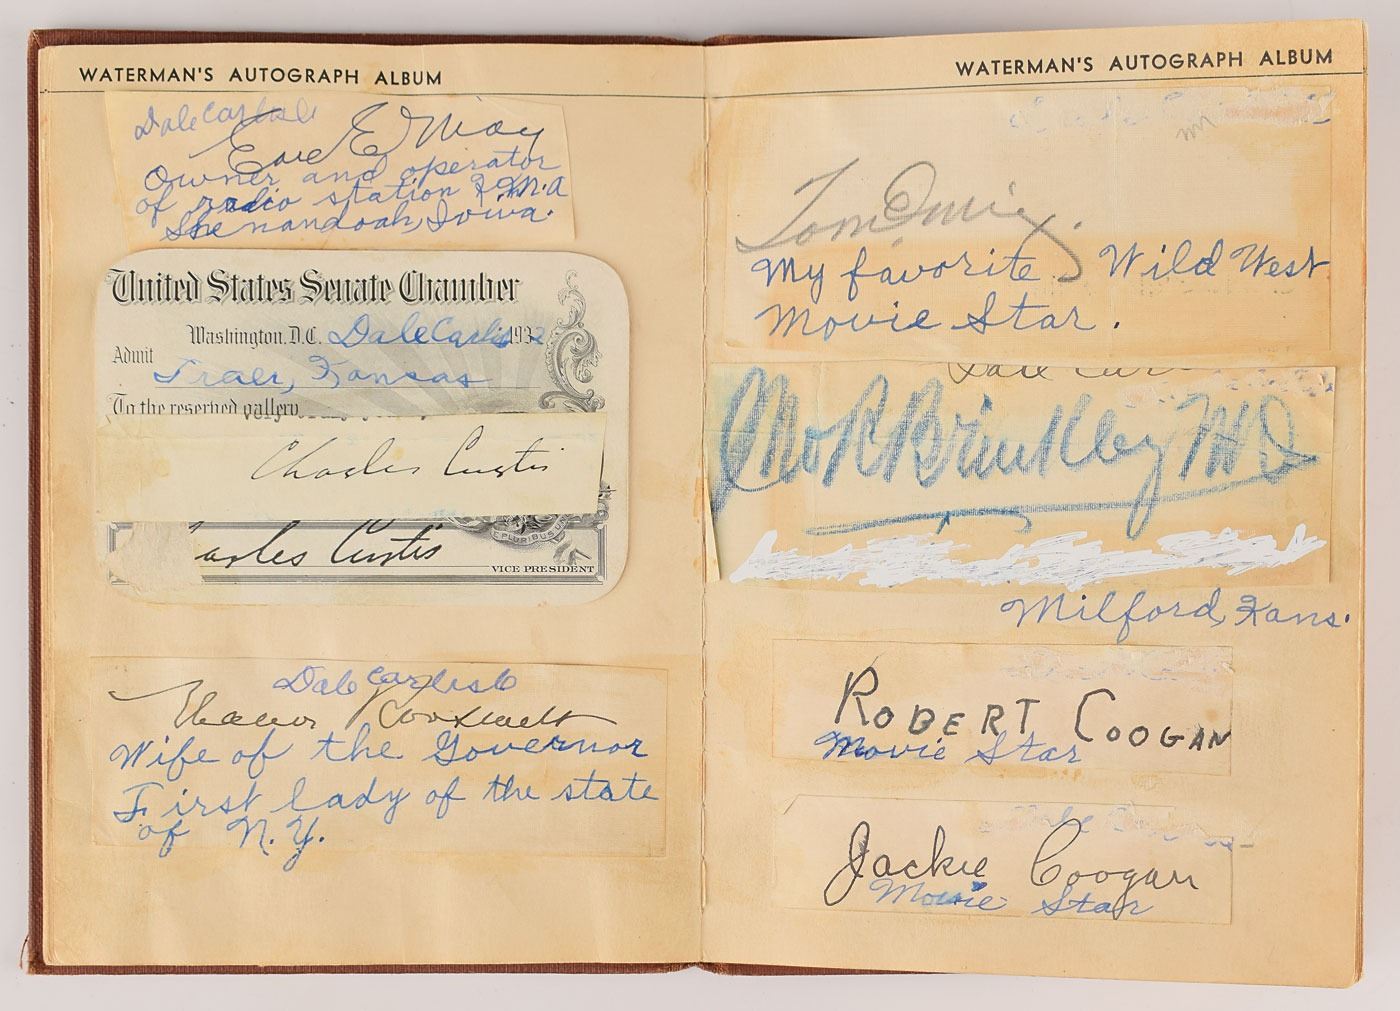 WATERMAN'S AUTOGRAPH ALBUM
Dale Carlisle
Earl E May
Owner and operator
of radio station K.F.N.A
Shenandoah, Iowa.
United States Senate Chamber
Washington, D.C. Dale Carlisle 1932
Admit
Traer, Kansas
To the reserved gallery.
Charles Curtis
arles Curtis
E PLURIBUS UN
VICE PRESIDENT
Dale Carlisle
Eleanor Roosevelt
Wife of the Governor
First lady of the state
of N.Y.
WATERMAN'S AUTOGRAPH ALBUM
Tom Mix.
My favorite Wild West
Movie Star.
Jno R Brinkley MD
Milford, Kans.
ROBERT COOGAN
Movie Star
Jackie Coogan
Movie Star